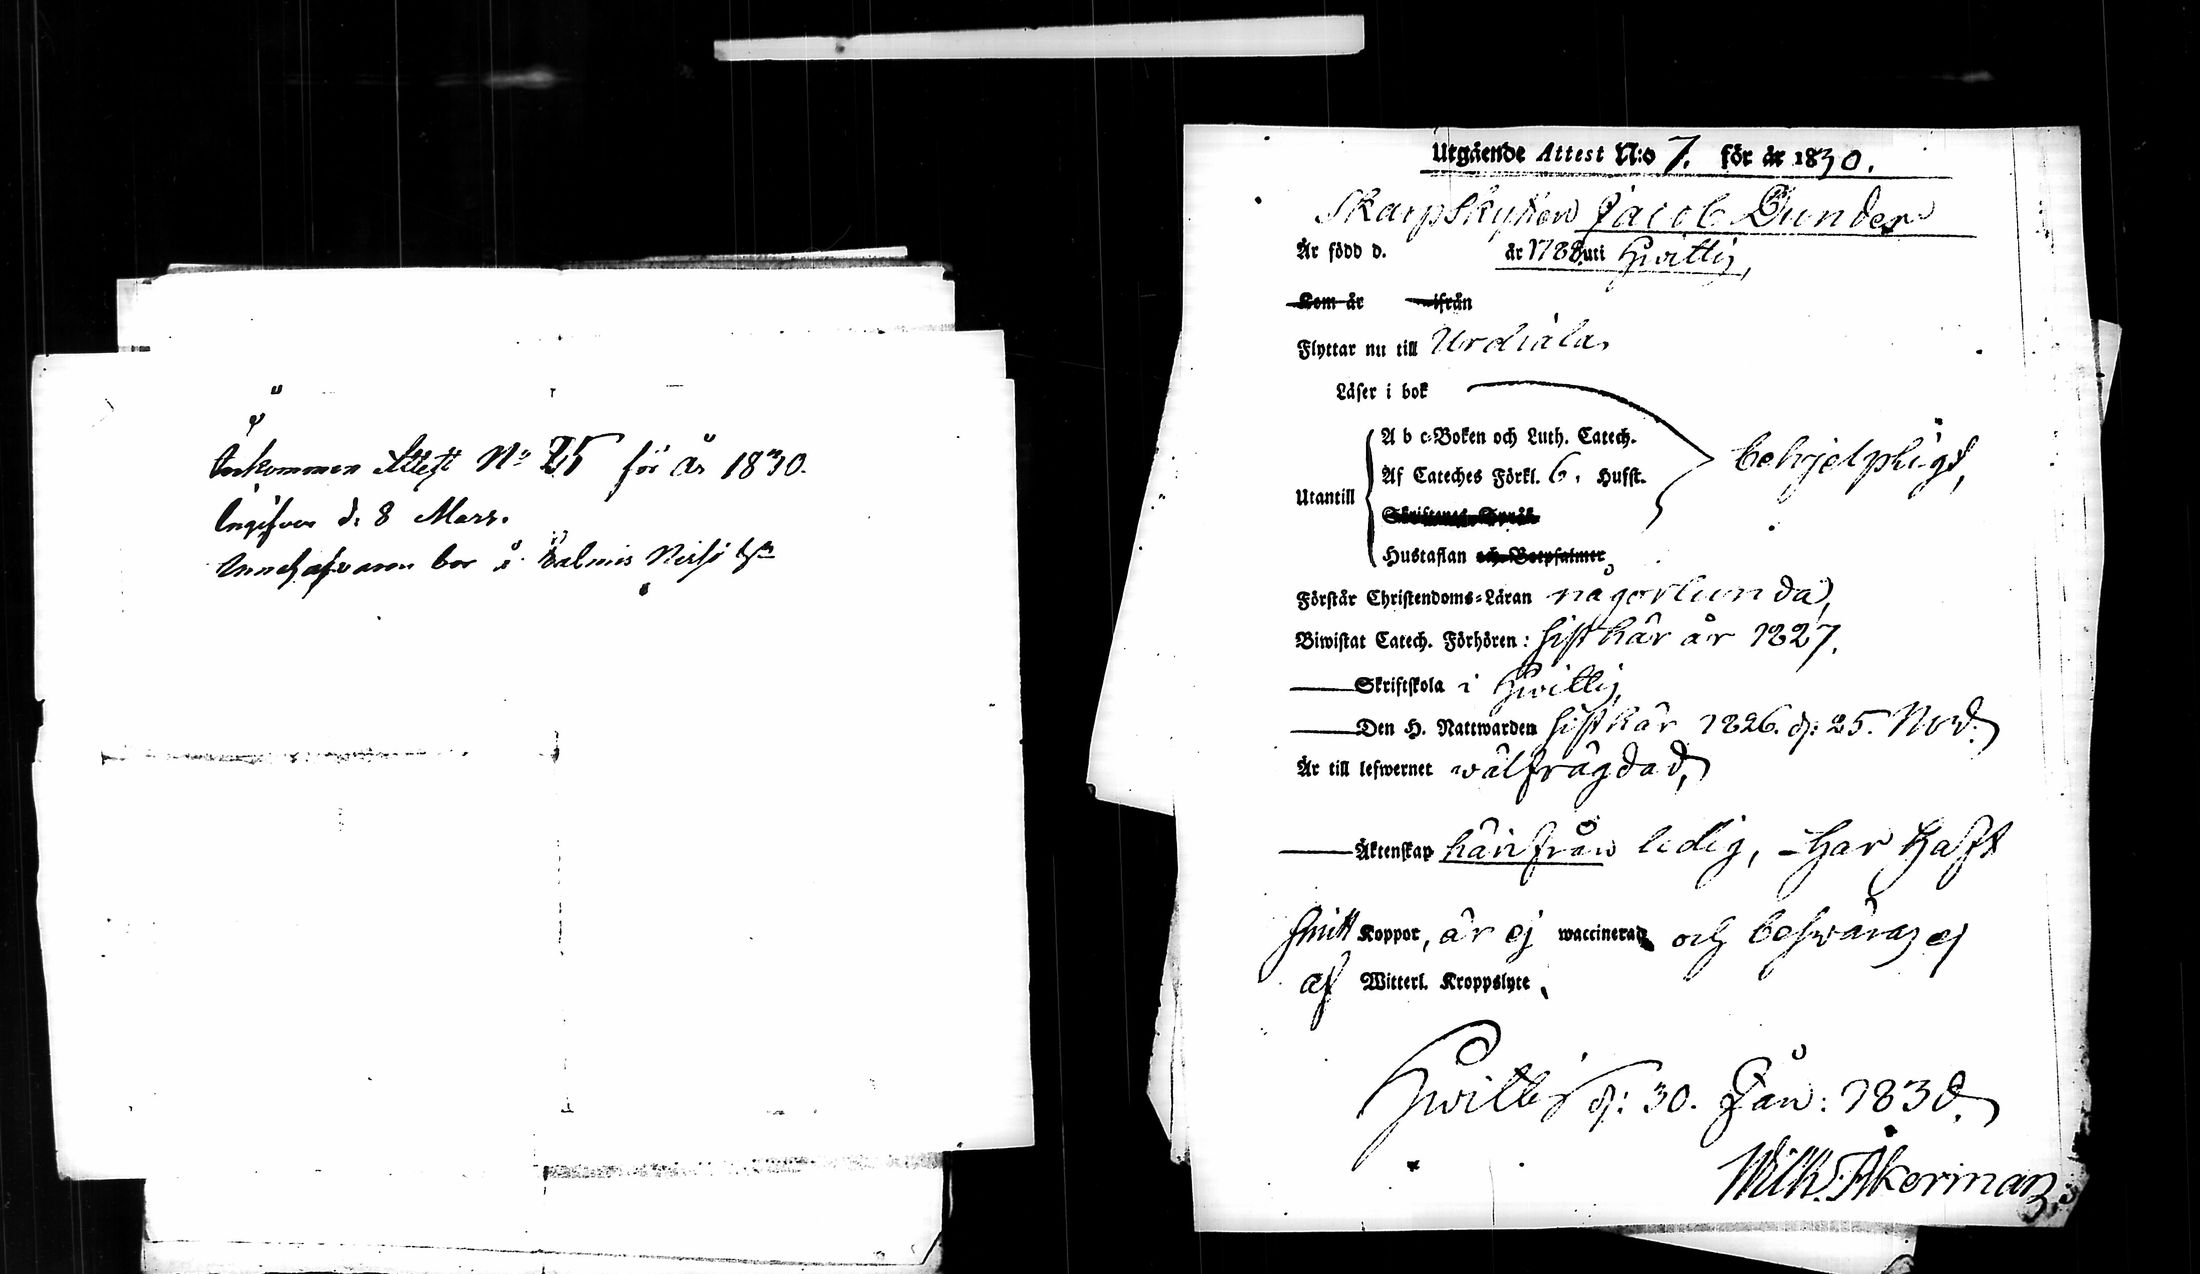 Inkommen Attest No 25 för år 1830.
Ingifven d. 8 Mars.
Innehafvaren bor å
Utgående Attest N:o 7. för år 1830.
Skarpskytten Jacob Dunder
År född d. år 1788 uti Hvittis,
Kom år ifrån
Flyttar nu till Urdiala.
Läser i bok
A b c-Boken och Luth. Catech.
behjelpligt,
Af Cateches Förkl. 6. Hufst.
Utantill
Skriftenes Språk
Hustaflan och Botpsalmer
Förstår Christendoms-Läran någorlunda,
Biwistat Catech. Förhören: sist här år 1827.
Skriftskola i Hvittis,
Den H. Nattwarden sist här 1826. d: 25. Nov.
År till lefwernet wälfrägdad,
Äktenskap härifrån ledig, har haft
Koppor, är ej waccinerad och beswäras ej
af Witterl. Kroppslyte.
Hvittis d: 30. Jan: 1830.
Wilh. Åkerman